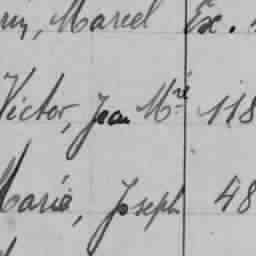 Marcel Ex.
Victor, Jean Mie 118
Marie, Joseph 48